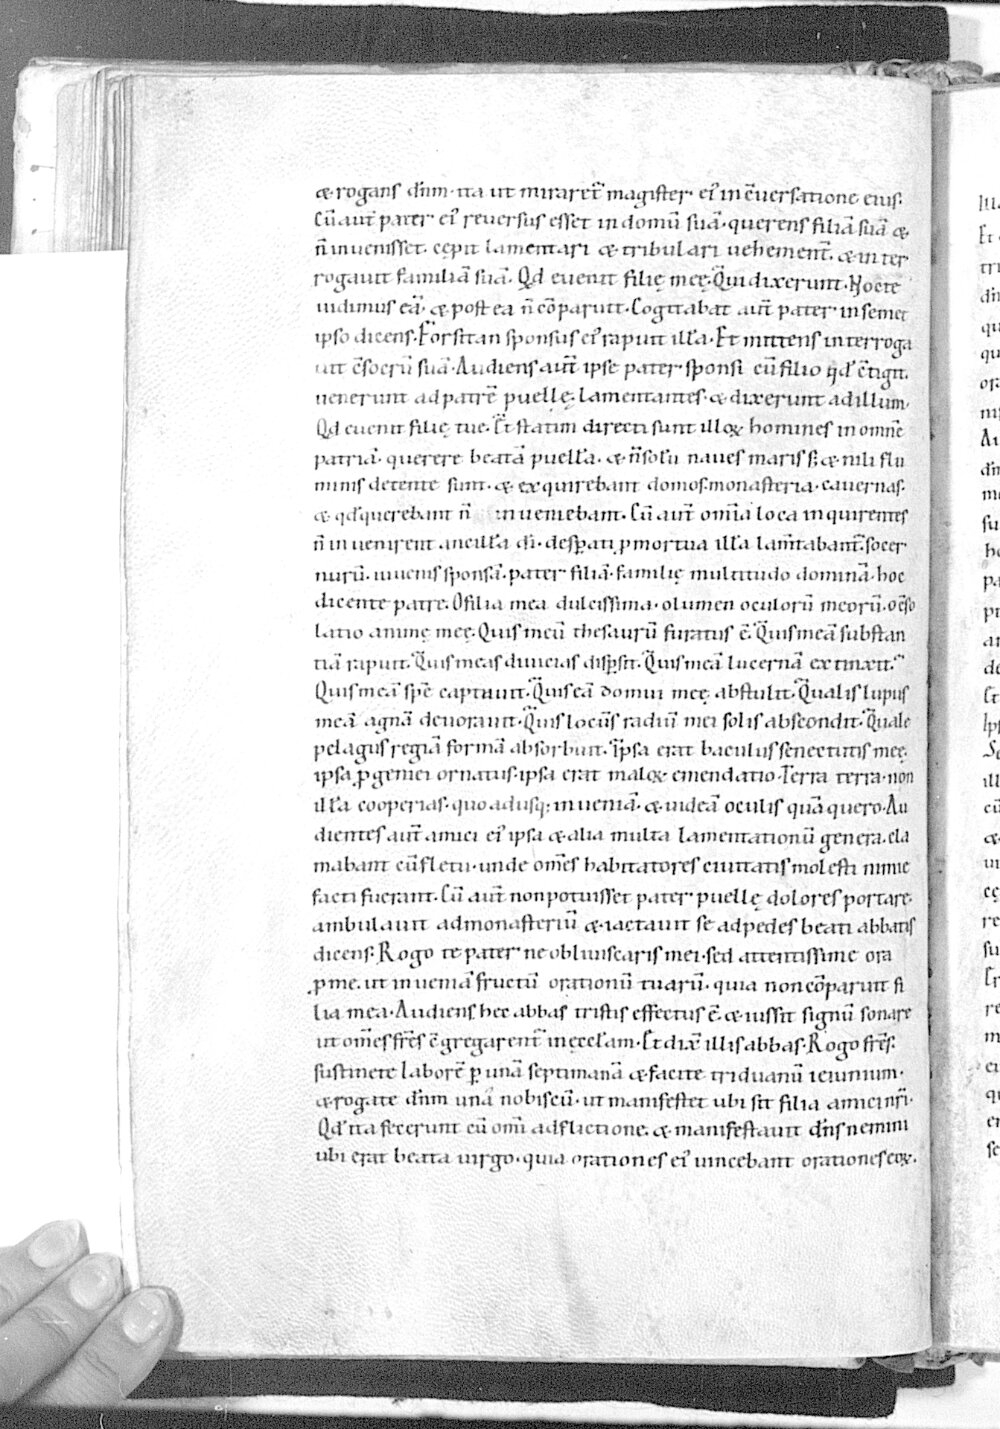 & rogans dn̄m· ita ut miraret᷑ magister· ei᷑ in c̄uersatione eius.
Cū aut̄ pater ei᷑ reuersus esset in domū suā· querens filiā suā &
n̄ inuenisset. cępit lamentari & tribulari uehement̄. & inter
rogauit familiā suā. Qđ euenit filię meę. Qui dixerunt. Nocte
uidimus eā. & post ea n̄ cōparuit. Cogitabat aut̄ pater in semet
ipso dicens. Forsitan sponsus ei᷑ rapuit illā. Et mittens interroga
uit c̄socerū suā. Audiens aut̄ ipse pater sponsi cū filio qđ c̄tigit.
uenerunt ad patrē puellę. lamentantes. & dixerunt ad illum.
Qđ euenit filię tuę. Et statim directi sunt illoꝝ homines in omnē
patriā. querere beatā puellā. & n̄ solū naues maris s; & nili flu
minis detente sunt. & exquirebant domos. monasteria. cauernas.
& qđ querebant n̄ inueniebant. Cū aut̄ omīa loca inquirentes
n̄ inuenirent ancillā dī. desꝑati ꝓ mortua illā lam̄tabant᷑. socer
nurū. iuuenis sponsā. pater filiā. familię multitudo dominā. hoc
dicente patre. O filia mea dulcissima. o lumen oculorū meorū. o c̄so
latio animę meę. Quis meū thesaurū furatus ē. Quis meā substan
tiā rapuit. Quis meas diuicias disꝑsit. Quis meā lucernā extinxit.
Quis meā spē captiuit. Quis eā domui meę abstulit. Qualis lupus
meā agnā deuorauit. Quis locus radiū mei solis abscondit. Quale
pelagus regiā formā absorbuit. Ipsa erat baculus senectutis meę.
ipsa ꝓgeniei ornatus. ipsa erat maloꝝ emendatio. Terra terra. non
illā cooperias. quo adusq; inueniā. & uideā oculis quā quero. Au
dientes aut̄ amici ei᷑ ipsa & alia multa lamentationū genera. cla
mabant cū fletu. unde om̄s habitatores ciuitatis molesti nimie
facti fuerant. Cū aut̄ non potuisset pater puellę dolores portare.
ambulauit ad monasteriū & iactauit se ad pedes beati abbatis
dicens. Rogo te pater ne obliuiscaris mei. sed attentissime ora
ꝓ me. ut inueniā fructū orationū tuarū. quia non cōparuit fi
lia mea. Audiens hec abbas tristis effectus ē. & iussit signū sonare
ut om̄s fr̄s c̄gregarent᷑ in ęcclam̄. Et dix̄ illis abbas. Rogo fr̄s.
sustinete laborē ꝑ unā septimanā & facite triduanū ieiunium.
& rogate dn̄m unā nobiscū. ut manifestet ubi sit filia amici nr̄i.
Qđ ita fecerunt cū omī adflictione. & manifestauit dn̄s nemini
ubi erat beata uirgo. quia orationes ei᷑ uincebant orationes eoꝝ.